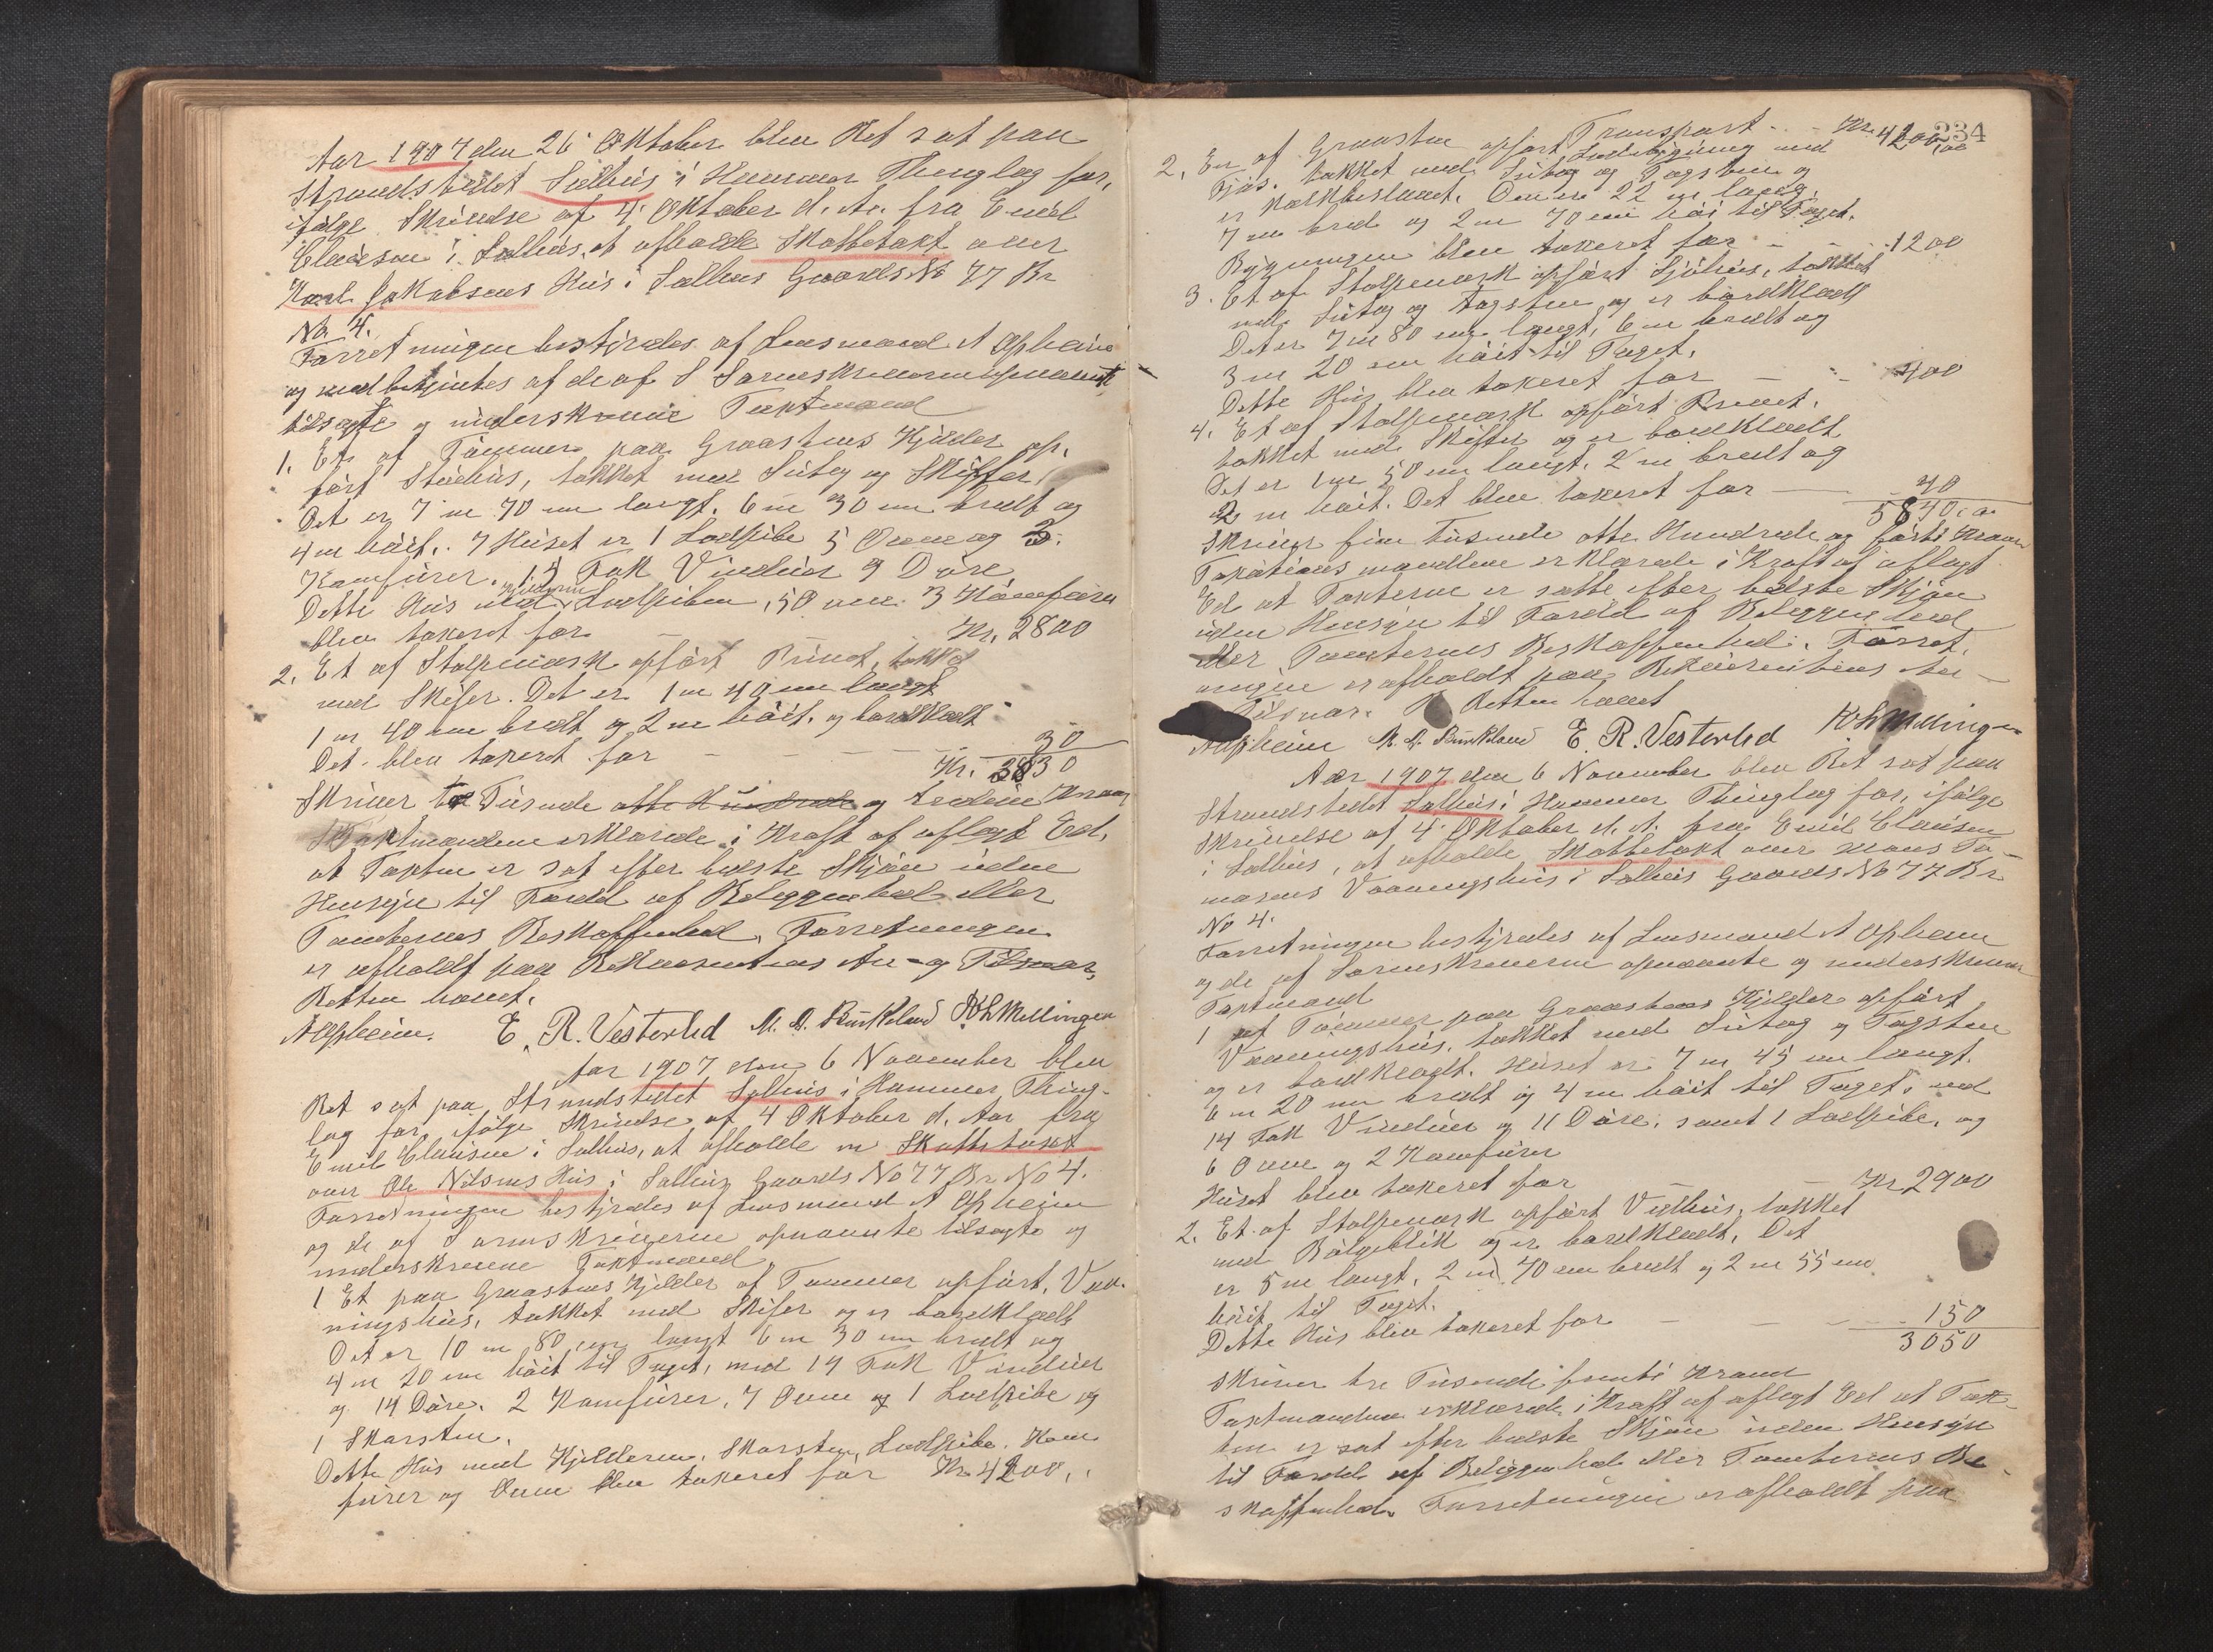 Aar 1907 den 26 Oktober blev Ret sat paa
Strandstedet Salhus i Hammer Thinglag for,
ifølge Skrivelse af 4 Oktober d. Ar. fra Emil
Clausen i Salhus, at afholde Skattetaxt over
Karl Jakobsens Hus i Salhus Gaards No 77 Br
No 4.
Forretningen bestyredes af Lensmand A Opheim
og medbetjentes af de af S Sorenskriveren opnævnte
tilsagte og underskrevne Taxtmænd
1. Et af Tömmer paa Graastens Kjelder op-
fört Stuehus, tækket med Sutag og Skiffer,
Det er 7 m 70 cm langt. 6 m 30 cm bredt og
4 m höit. I Huset er 1 Ludpibe 5 Ovne og 3.
Komfurer. 15 Fak Vinduer 9 Döre
Dette Hus med Kjelderen Ludpiben, 5 Ovne. 3 Komfurer
blev taxeret for Kr. 2800
2. Et af Stolpeværk opfört Privet, tækket
med Skifer. Det er 1 m 40 cm langt
1 m 40 cm bredt og 2 m höit. og bordklædt
Det blev taxeret for 30
Kr. 2830
Skriver to Tusende otte Hundrede og tredive Kroner
Taxtmændene erklærede i Kraft af aflagt Ed.
at Taxten er sat efter bedste Skjön uden
Hensyn til Fordel af Beliggenhed eller
Tomternes Beskaffenhed. Forretningen
er afholdt paa Rekvirentens An- og Tilsvar.
Retten hævet.
A Opheim. E. R. Vesterlid M. A. Birkeland K H Mellingen
Aar 1907 den 6 November blev
Ret sat paa Strandstedet Salhus i Hammer Thing-
lag for, ifölge Skrivelse af 4 Oktober d. Aar fra
Emil Clausen i Salhus, at afholde en Skattetaxt
over Ole Nilsens Hus i Salhus Gaards No 77 Br. No 4.
Forretningen bestyredes af Lensmand A Opheim
og de af Sorenskriveren opnævnte tilsagte og
underskrevne Taxtmænd.
1 Et paa Graastens Kjelder af Tømmer opfört, Vaa-
ningshus, tækket med Skifer og er bordklædt
Det er 10 m 80 cm langt 6 m 30 cm bredt og
4 m 20 cm höit til Taget, med 19 Fak Vinduer
og 14 Döre. 2 Komfurer, 7 Ovne og 1 Ludpibe og
1 Skorsten.
Dette Hus med Kjelderen, Skorsten, Ludpibe. Kom
furer og Ovne blev taxeret for Kr 4200,
334
Transport Kr. 4200,00
2. En af Graasten opfört Ludebygning med
Fjös. tækket med Sutag og Tagsten og
er kalkbeslaaet. Den er 22 m lang.
7 m bred og 2 m 70 cm höi til Taget.
Bygningen blev taxeret for 1200
3. Et af Stolpeværk opfört Sjöhus, tækket
med Sutag og Tagsten og er bordklædt
Det er 7 m 80 cm langt, 6 m bredt og
3 m 20 cm höit til Taget.
Dette Hus blev taxeret for 400
4. Et af Stolpeværk opfört Privet.
tækket med Skiffer og er bordklædt
Det er 1 m 50 cm langt. 2 m bredt og
2 m höit. Det blev taxeret for 40
5840,00
Skriver fem Tusende otte Hundrede og förti Kroner
Taxationsmændene erklærede i Kraft af aflagt
Ed at Taxterne er satte efter bedste Skjön
uden Hensyn til Fordel af Beliggenhed
eller Tomternes Beskaffenhed. Forret-
ningen er afholdt paa Rekvirentens An-
og Tilsvar. Retten hævet
A Opheim M. A. Birkeland E. R. Vesterlid K H Mellingen
Aar 1907 den 6 November blev Ret sat paa
Strandstedet Salhus i Hammer Thinglag for, ifölge
Skrivelse af 4 Oktober d. A. fra Emil Clausen
i Salhus, at afholde Skattetaxt over Mons To-
masens Vaaningshus i Salhus Gaards No 77 Br
No 4.
Forretningen bestyredes af Lensmand A Opheim
og de af Sorenskriveren opnævnte og underskrevne
Taxtmænd
1 et Tömmer paa Graastens Kjelder opfört
Vaaningshus, tækket med Sutag og Tagsten
og er bordklædt. Huset er 7 m 45 cm langt.
6 m 20 cm bredt og 4 m höit til Taget, med
14 Fak Vinduer og 11 Döre, samt 1 Ludpibe, og
6 Ovne og 2 Komfurer
Huset blev taxeret for Kr 2900
2. Et af Stolpeværk opfört Vedhus, tækket
med Bölgeblik og er bordklædt, Det
er 5 m langt, 2 m 70 cm bredt og 2 m 55 cm
höit til Taget.
Dette Hus blev taxeret for 150
3050
Skriver tre Tusende femti Kroner
Taxtmændene erklærede i Kraft af aflagt Ed at Tax-
ten er sat efter bedste Skjön uden Hensyn
til Fordel af Beliggenhed eller Tomternes Be
skaffenhed. Forretningen er afholdt paa